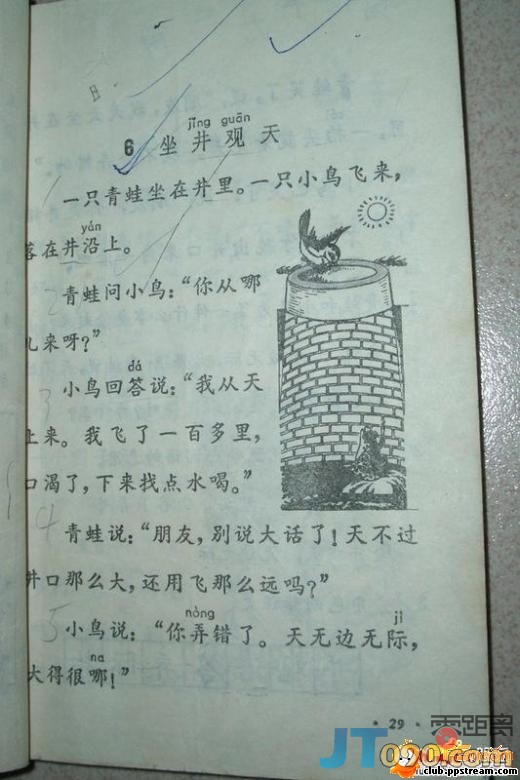 jǐng guān
6 坐井观天
一只青蛙坐在井里。一只小鸟飞来，
yán
落在井沿上。
青蛙问小鸟：“你从哪
儿来呀？”
dá
小鸟回答说：“我从天
上来。我飞了一百多里，
口渴了，下来找点水喝。”
青蛙说：“朋友，别说大话了！天不过
井口那么大，还用飞那么远吗？”
nòng jì
小鸟说：“你弄错了。天无边无际，
na
大得很哪！”
3
4
5
· 29 ·
零距离
JT090.com
club.ppstream.com